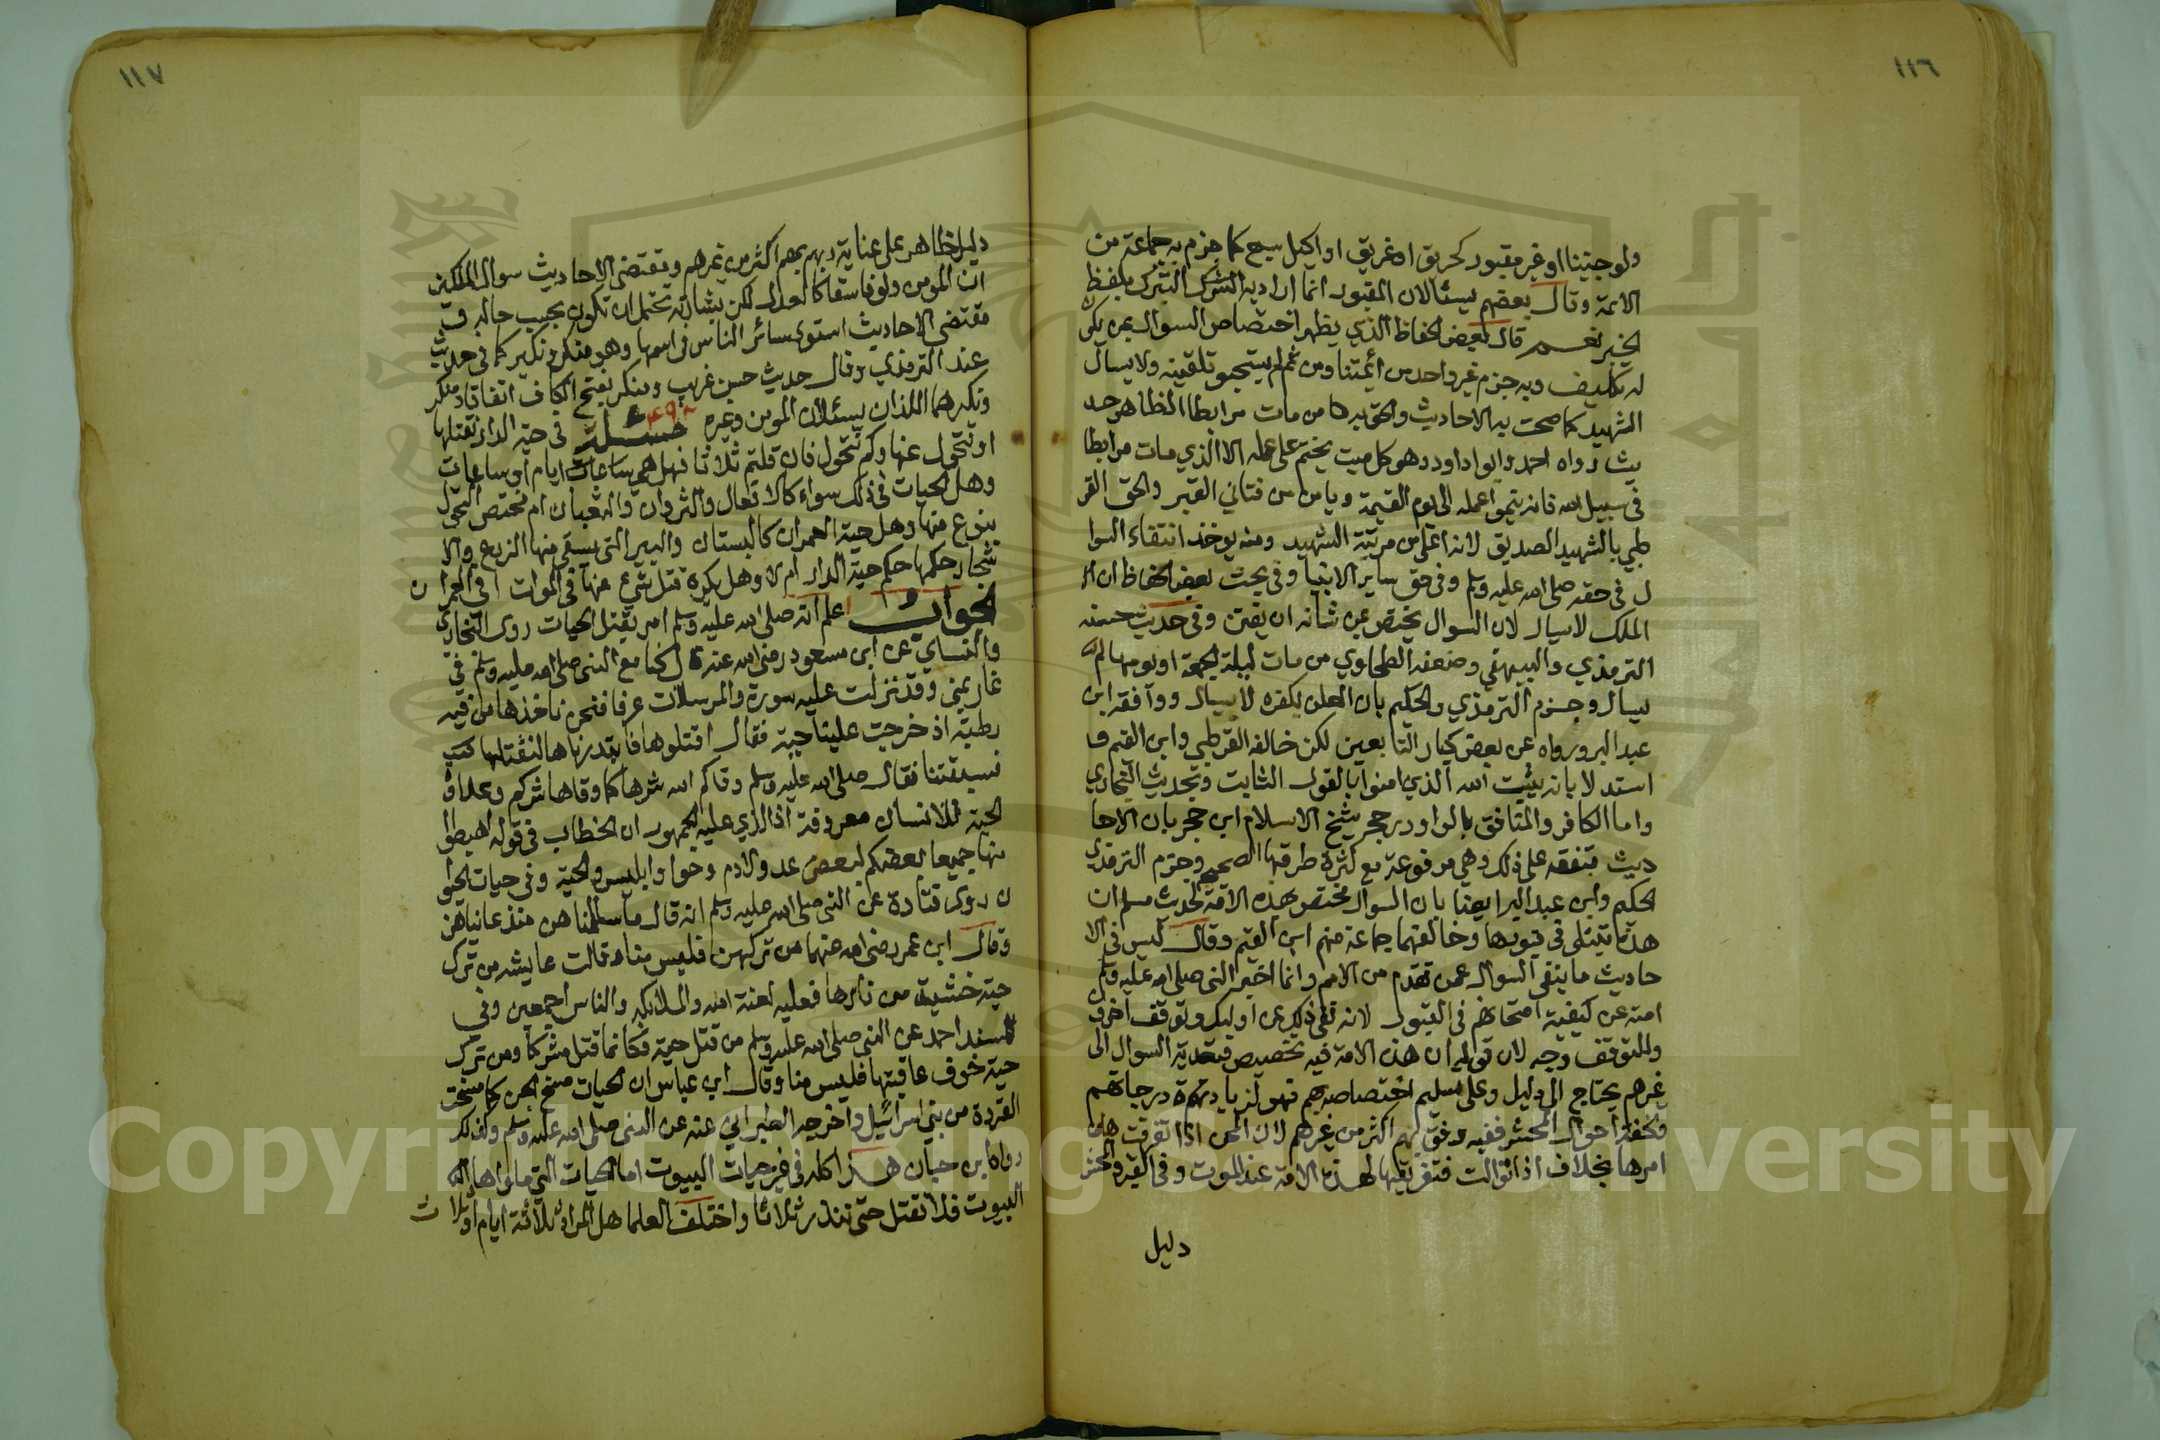 ١١٦
ولو جنينا او غير مقبور كحريق او غريق او اكيل سبع كما جزم به جماعة من
الائمة وقال بعضهم يسئالان المقبور انما اراد به التبرك بلفظ
الخبر نعم قال بعض الحفاظ الذي يظهر اختصاص السوال بمن يكون
له تكليف وبه جزم غير واحد من ائمتنا ومن ثم لم يستحبو تلقينه ولا يسال
الشهيد كما صحت به الاحاديث والحق به من مات مرابطا لظاهر حد
يث رواه احمد وابو اداود وهو كل ميت يختم على عمله الا الذي مات مرابطا
في سبيل الله فانه ينمو اعمله الى يوم القيمة ويامن من فتاني القبر والحق القر
طبي بالشهيد الصديق لانه اعلى من مرتبة الشهيد ومنه يوخذ انتقاء السوا
ل في حقه صلى الله عليه وسلم وفي حق ساير الانبيا وفي بحث بعض الحفاظ ان
الملك لا يسال لان السوال يختص بمن شانه ان يفتن وفي حديث حسنه
الترمذي والبيهقي وضعفه الطحاوي من مات ليلة الجمعة او يومها لم
يسال وجزم الترمذي والحكيم بان المعلن بكفره لا يسال ووافقه ابن
عبد البر ورواه عن بعض كبار التابعين لكن خالفه القرطبي وابن القيم و
استدلا بانه يثبت الله الذين امنوا بالقول الثابت وبحديث البخاري
واما الكافر والمنافق بالواو ورجحه شيخ الاسلام ابن حجر بان الاحا
ديث متفقه على ذلك وهي مرفوعة مع كثرة طرقها الصحيحة وجزم الترمذي
الحكيم وابن عبد البر ايضا بان السوال مختص بهذه الامة لحديث مسلم ان
هذه تبتلى في قبورها وخالفهما جماعة منهم ابن القيم وقال ليس في الا
حاديث ما ينفي السوال عمن تقدم من الامم وانما اخبر النبي صلى الله عليه وسلم
امته عن كيفية امتحانهم في القبور لانه نفى ذلك عن اوليك وتوقف اخرون
وللتوقف وجه لان قوله ان هذه الامة فيه تخصيص فتعدية السوال الى
غيرهم يحتاج الى دليل وعلى تسليم اختصاصه بهم فهو لزيادة درجاتهم
ولخفة احوال المحشر ففيه رفق بهم اكثر من غيرهم لان المحن اذا تفرقت هان
امرها بخلاف اذا توالت فتفريقها لهذه الامة عند الموت وفي القبر والحشر
دليل
١١٧
دليل ظاهر على عناية ربهم بهم اكثر من غيرهم ومقتضى الاحاديث سوال الملكين
ان المومن ولو فاسقا كالعدل لكن بشارته تحتمل ان تكون بحسب حاله و
مقتضى الاحاديث استوى سائر الناس في اسمها وهو منكر ونكير كما في حديث
عند الترمذي وقال حديث حسن غريب ومنكر بفتح الكاف اتفاقا ومنكر
ونكير هما اللذان يسئلان المومن وغيره مسئلة في حية الدار نقتلها
او نتحول عنها وكم نتحول فان قلتم ثلاثا فهل هي ساعات ايام او ساعات
وهل الحيات في ذلك سواء كالافعال والثعبان ام مختص التحول
بنوع منها وهل حية العمران كالبستان والبير التي يسقى منها الزرع والا
شجار حكمها حكم حية الدار ام لا وهل يكره قتل شيء منها في الموات او في العمران
الجواب اعلم انه صلى الله عليه وسلم امر بقتل الحيات روى البخاري
والنساي عن ابن مسعود رضي الله عنه قال كنا مع النبي صلى الله عليه وسلم في
غار بمنى وقد نزلت عليه سورة والمرسلات عرفا فنحن ناخذها من فيه
رطبة اذ خرجت علينا حية فقال اقتلوها فابتدرناها لنقتلها
فسبقتنا فقال صلى الله عليه وسلم وقاكم الله شرها كما وقاها شركم وعداوة
الحية للانسان معروفة اذ الذي عليه الجمهور ان الخطاب في قوله اهبطوا
منها جميعا بعضكم لبعض عدو لادم وحوا وابليس والحية وفي حيات الحيوا
ن روى قتادة عن النبي صلى الله عليه وسلم انه قال ما سالمناهن منذ عاديناهن
وقال ابن عمر رضي الله عنهما من تركهن فليس منا وقالت عايشه من ترك
حية خشية من ثارها فعليه لعنة الله والملائكة والناس اجمعين وفي
مسند احمد عن النبي صلى الله عليه وسلم من قتل حية فكانما قتل مشركا ومن ترك
حية خوف عاقبتها فليس منا وقال ابن عباس ان الحيات مسخ الجن كما مسخت
القردة من بني اسرائيل واخرجه الطبراني عنه عن النبي صلى الله عليه وسلم وكذلك
رواه ابن حبان هذا كله في غير حيات البيوت اما الحيات التي ماواها
البيوت فلا تقتل حتى تنذر ثلاثا واختلف العلما هل المراد ثلاثة ايام او ثلاث
Copyright © King Saud University